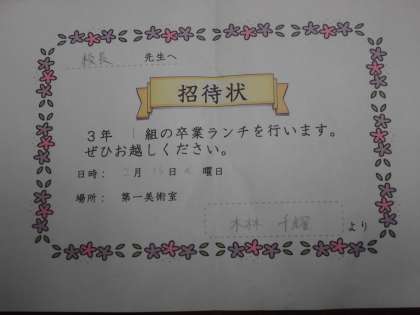 校長 先生へ
招待状
3年 1組の卒業ランチを行います。
ぜひお越しください。
日時： 2月 日 曜日
場所： 第一美術室
木林 千 より